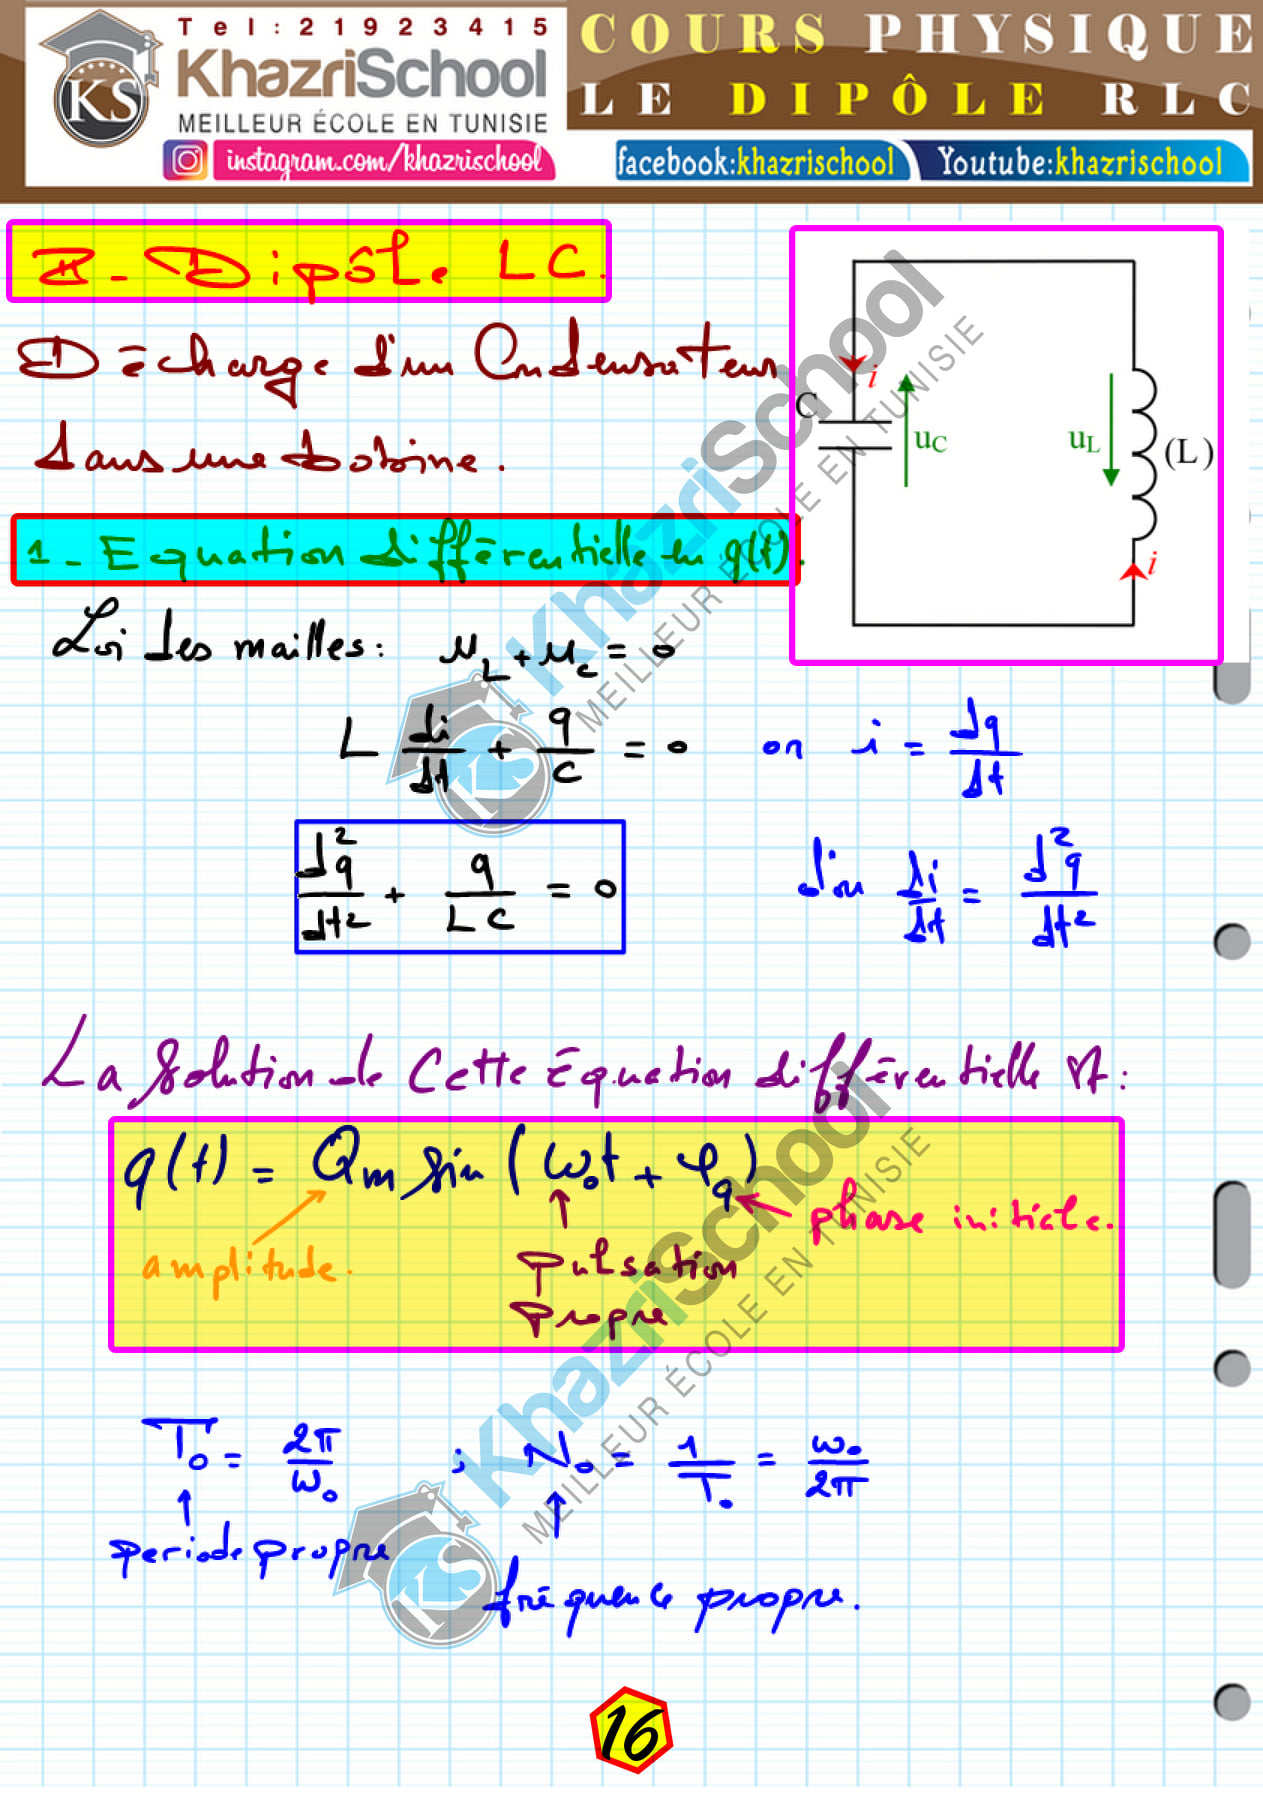 Tel:21923415
KhazriSchool
MEILLEUR ÉCOLE EN TUNISIE
instagram.com/khazrischool
COURS PHYSIQUE
LE DIPÔLE RLC
facebook:khazrischool
Youtube:khazrischool
KS
II - Dipôle LC.
Décharge d'un Condensateur
dans une bobine.
C i uC uL (L) i
1 - Equation différentielle en q(t).
Loi des mailles : uL + uC = 0
L di/dt + q/C = 0 or i = dq/dt
d²q/dt² + q/LC = 0 d'ou di/dt = d²q/dt²
La solution de cette équation différentielle est :
q(t) = Qm sin (ω0t + φq)
amplitude.
pulsation propre
phase initiale.
T0 = 2π/ω0 ; N0 = 1/T0 = ω0/2π
periode propre
fréquence propre.
16
KhazriSchool
MEILLEUR ÉCOLE EN TUNISIE
KS
KhazriSchool
MEILLEUR ÉCOLE EN TUNISIE
KS